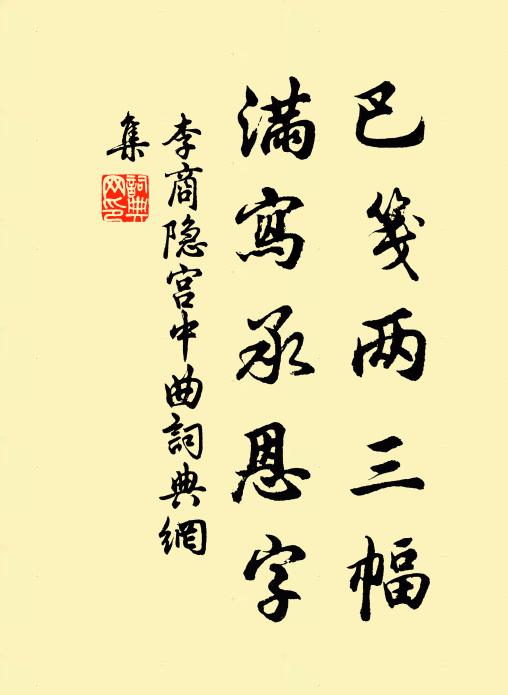 巴笺两三幅
满寫承恩字
李商隐宫中曲詞典網
集
詞典
网印